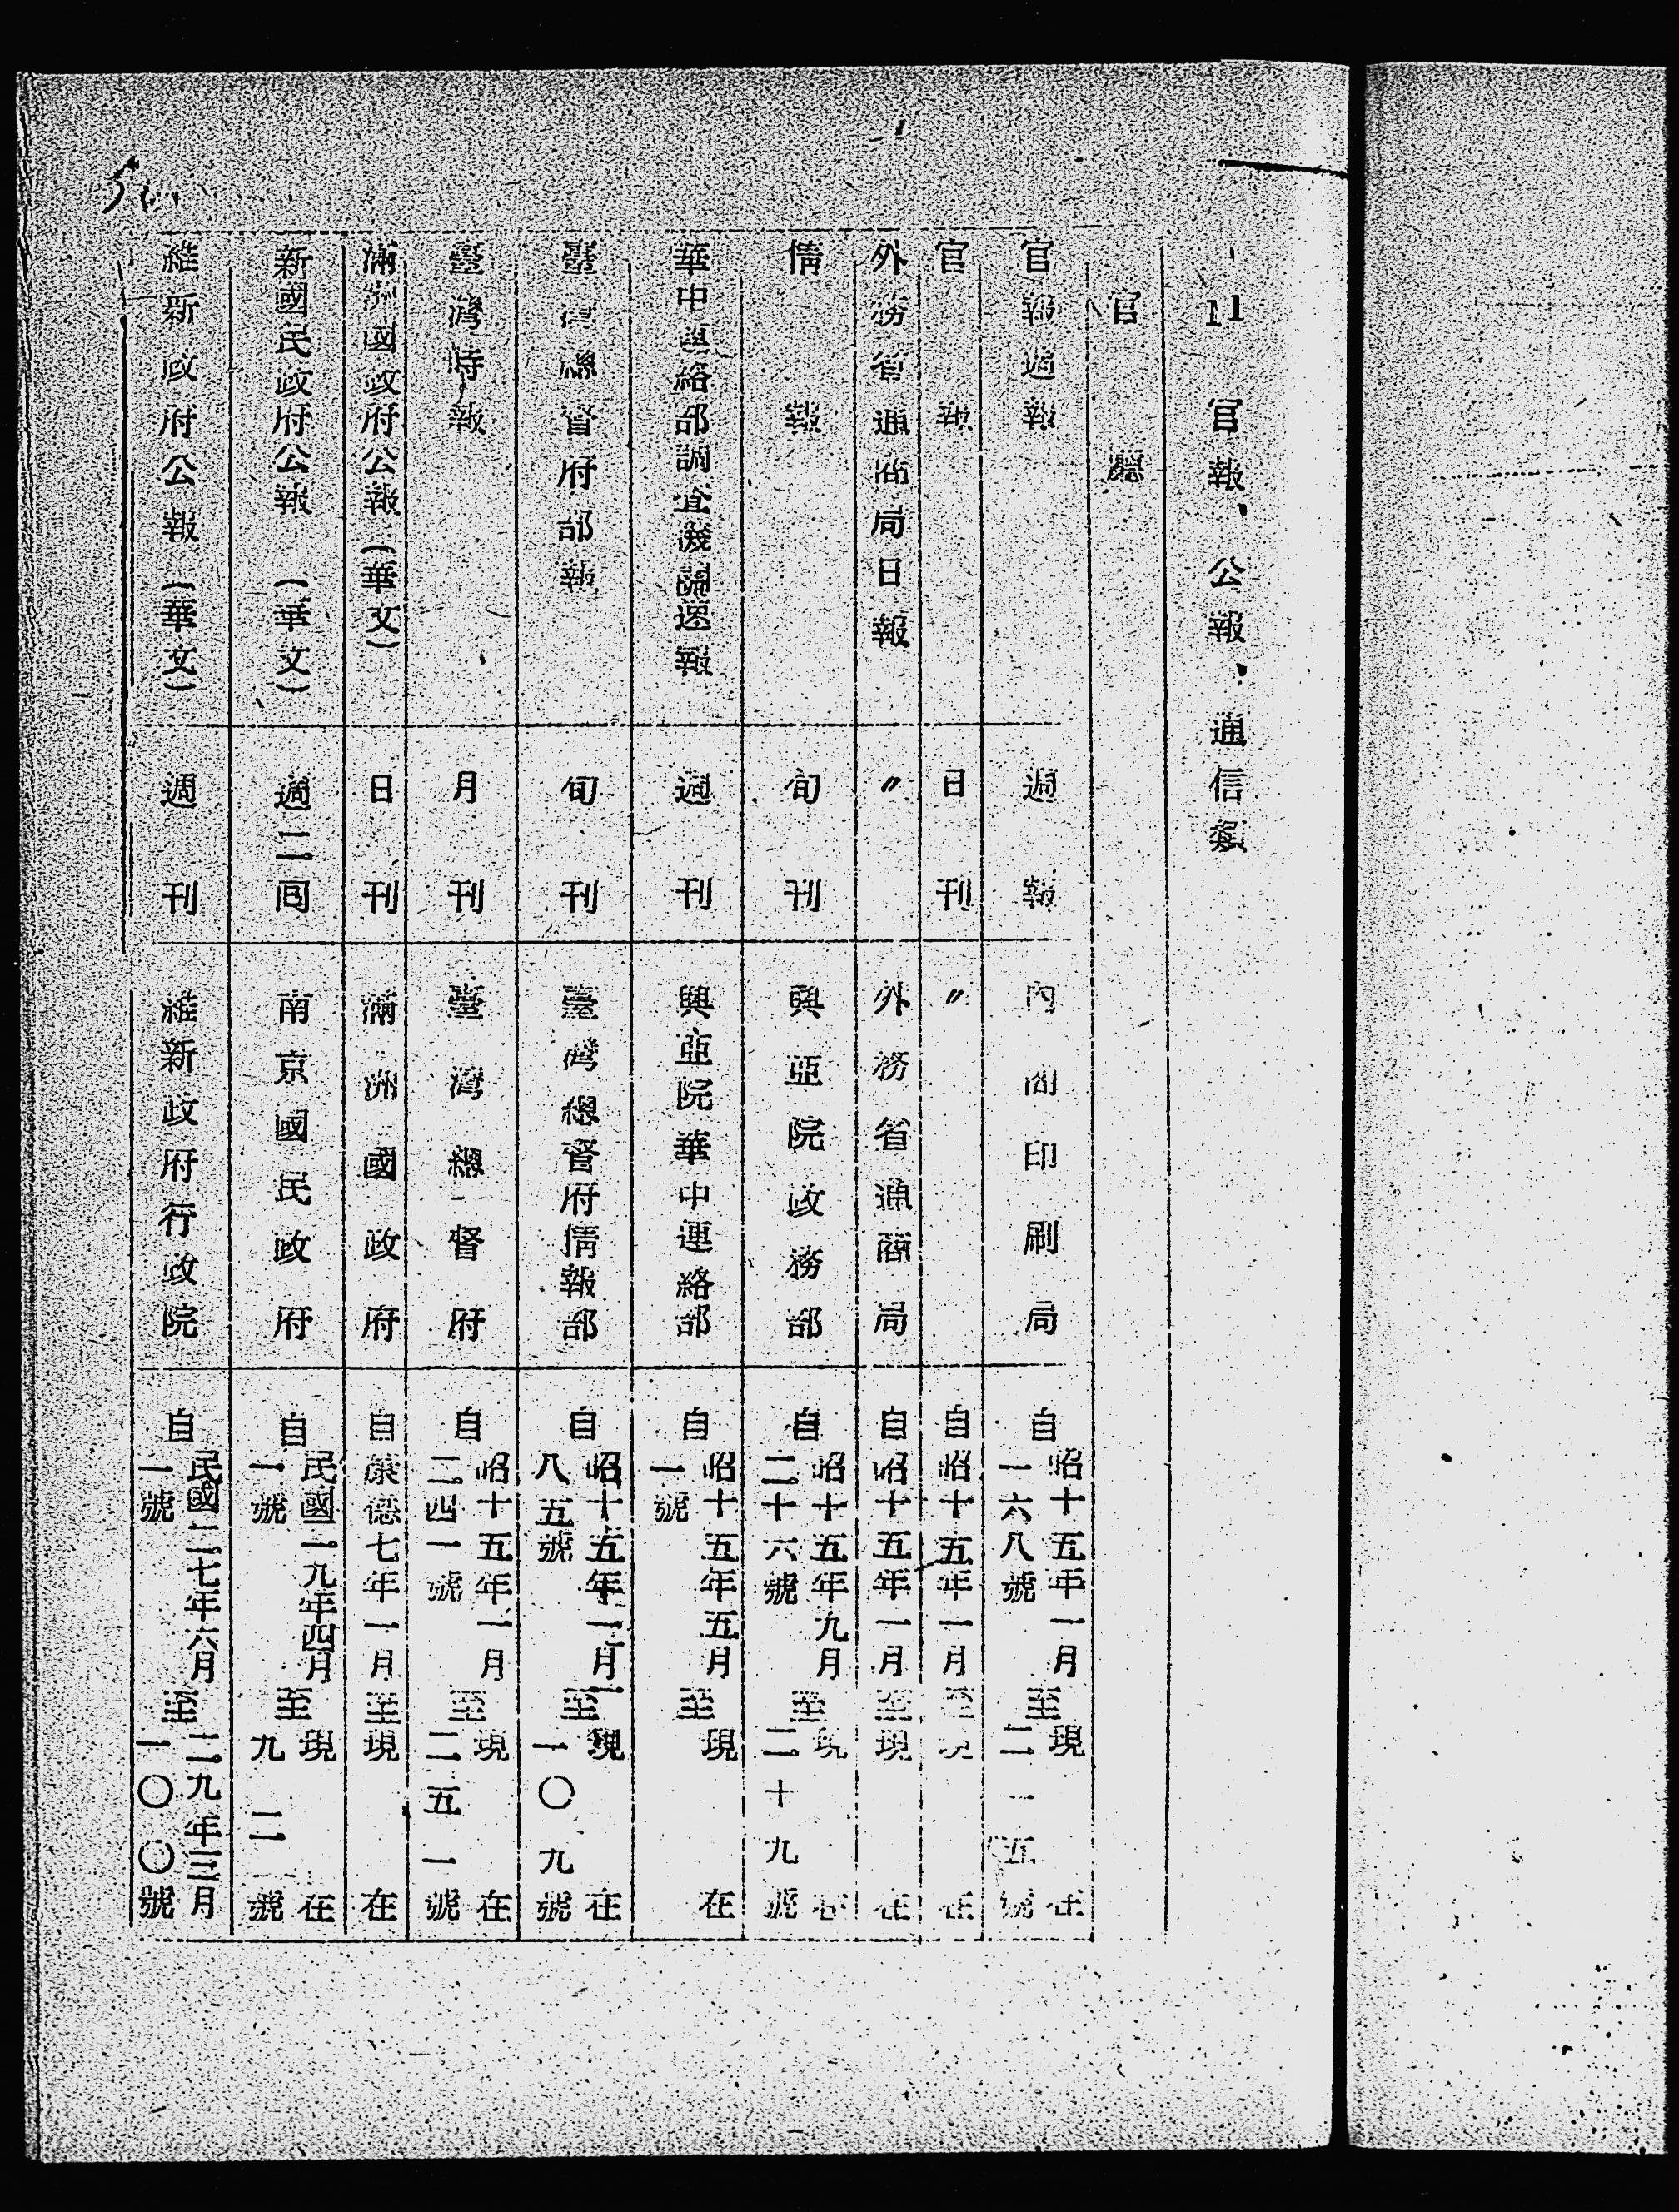 11 官報、公報、通信類
官廳
官報週報 週報 內閣印刷局 自昭十五年一月一六八號至現在二一五號
官報 日刊 〃 自昭十五年一月至現在
外務省通商局日報 〃 外務省通商局 自昭十五年一月至現在
情報 旬刊 興亞院政務部 自昭十五年九月二十六號至現在二十九號
華中連絡部調査機關速報 週刊 興亞院華中連絡部 自昭十五年五月一號至現在
臺灣總督府部報 旬刊 臺灣總督府情報部 自昭十五年一月八五號至現在一〇九號
臺灣時報 月刊 臺灣總督府 自昭十五年一月二四一號至現在二五一號
滿洲國政府公報(華文) 日刊 滿洲國政府 自康德七年一月至現在
新國民政府公報(華文) 週二回 南京國民政府 自民國二九年四月一號至現在九二號
維新政府公報(華文) 週刊 維新政府行政院 自民國二七年六月一號至二九年三月一〇〇號